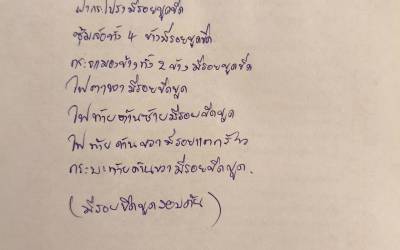 ฝากระโปรงมีรอยขูดขีด
ซุ้มล้อทั้ง 4 ข้างมีรอยขูดขีด
กระจกมองข้างทั้ง 2 ข้าง มีรอยขูดขีด
ไฟตาขวา มีรอยขีดขูด
ไฟท้ายด้านซ้ายมีรอยขีดขูด
ไฟท้ายด้านขวามีรอยแตกร้าว
กระบะท้ายด้านขวามีรอยขีดขูด.
(มีรอยขีดขูดรอบคัน)